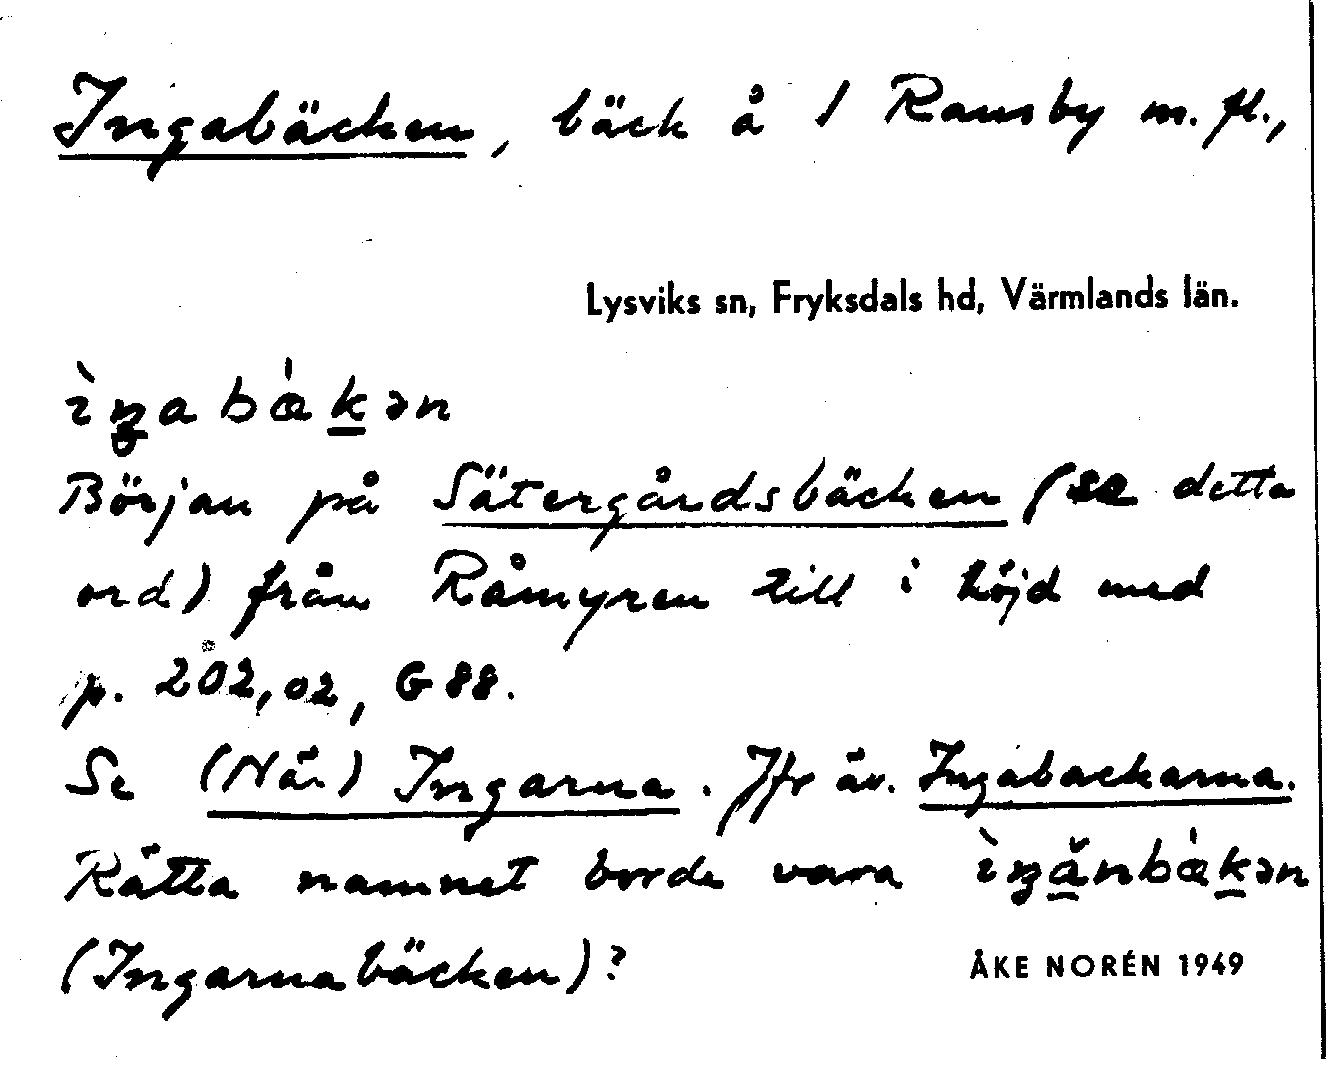 Ingabäcken, bäck å 1 Ransby m.fl.,
Lysviks sn, Fryksdals hd, Värmlands län.
ìŋabæ̀kən
Början på Sätergårdsbäcken (se detta
ord) från Råmyren till i höjd med
p. 202,02, G 88.
Se (När) Ingarna. Jfr äv. Ingabackarna.
Rätta namnet borde vara ìŋănbæ̀kən
(Ingarnabäcken)?
ÅKE NORÉN 1949